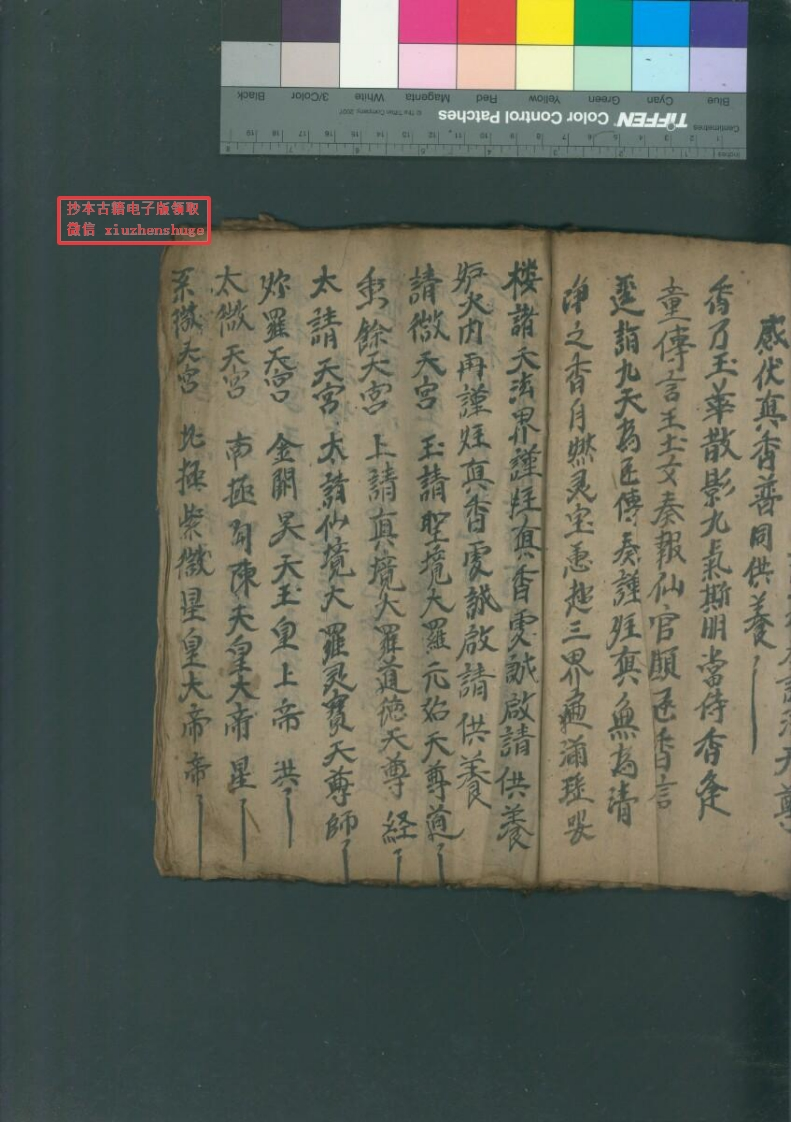 感伏真香普同供養
香乃玉華散影九氣斯明當侍香逢
童傳言玉女奏報仙官願
遥詣九天為臣傳奏謹炷真為清
淨之香自然灵宝惠
三界遍滿
楼諸天法界謹炷真香虔誠啟請供養
炉火内再謹炷真香虔誠啟請供養
請微天宮 玉請聖境大羅元始天尊道
餘天宮 上請真境大羅道德天尊 経
太請天宮 太請仙境大羅灵寶天尊師
弥羅天宮 金闕昊天玉皇上帝 洪
太微天宮 南極勾陳天皇大帝 星
紫微天宮 北極紫微星皇大帝帝
抄本古籍电子版领取
微信 xiuzhenshuge
TIFFEN Color Control Patches
© The Tiffen Company, 2007
Blue Cyan Green Yellow Red Magenta White 3/Color Black
Centimetres
Inches